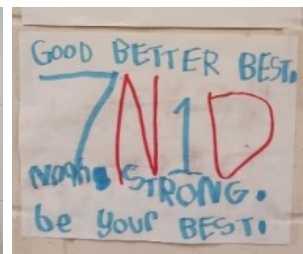 GOOD BETTER BEST.
7N1D
Noah STRONG.
be your BEST.